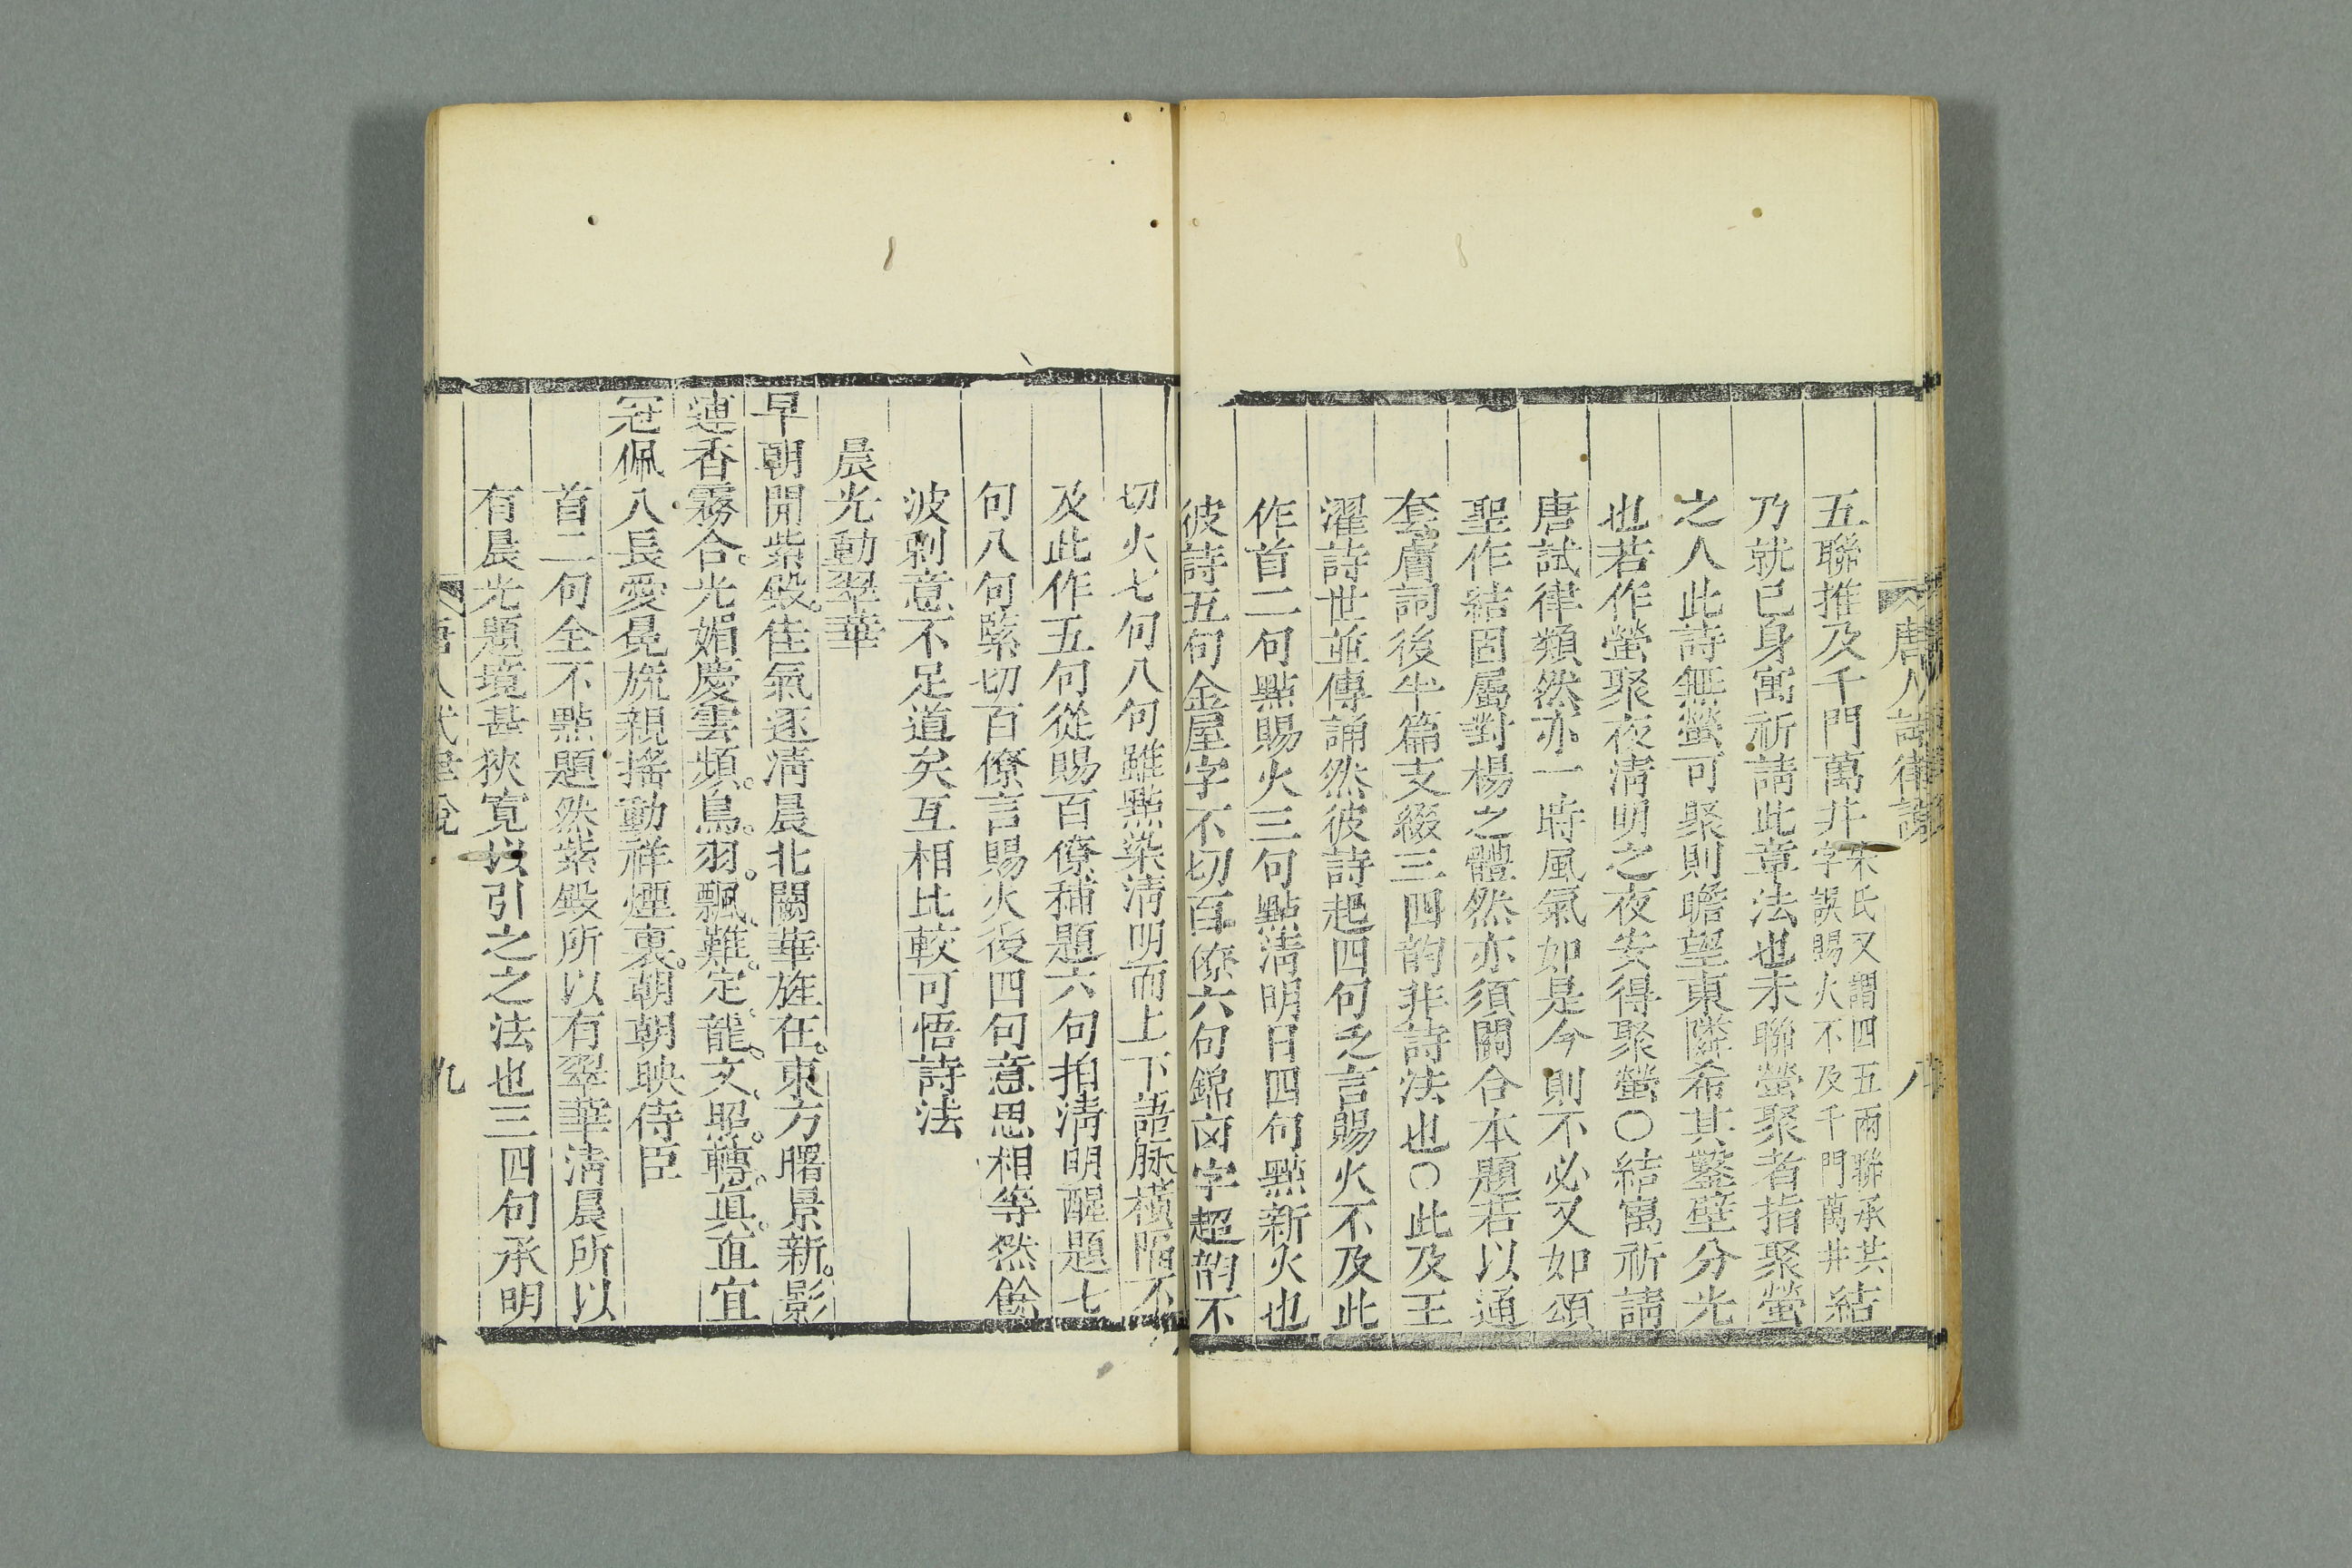 唐人試律說 八
五聯推及千門萬井宋氏又謂四五兩聯承其
字誤賜火不及千門萬井結
乃就已身寓祈請此章法也末聯螢聚者指聚螢
之人此詩無螢可聚則瞻望東隣希其鑿壁分光
也若作螢聚夜清明之夜安得聚螢○結寓祈請
唐試律類然亦一時風氣如是今則不必又如頌
聖作結固屬對楊之體然亦須關合本題若以通
套膚詞後半篇支綴三四韵非詩法也○此及王
濯詩世並傳誦然彼詩起四句乏言賜火不及此
作首二句點賜火三句點清明日四句點新火也
彼詩五句金屋字不切百僚六句錦字超韵不
切火七句八句雖點染清明而上下語脉橫隔不
及此作五句從賜百僚補題六句拍清明醒題七
句八句緊切百僚言賜火後四句意思相等然餘
波剩意不足道矣互相比較可悟詩法
晨光動翠華
早朝開紫殿。佳氣逐清晨北闕華旌在。東方曙景新。影
連香霧合。光媚慶雲頻。鳥羽飄難定龍文照轉真直宜
冠佩入長愛冕旒親搖動祥煙裏。朝朝映侍臣
首二句全不點題然紫殿所以有翠華清晨所以
有晨光題境甚狹寬以引之之法也三四句承明
唐人試律說 九